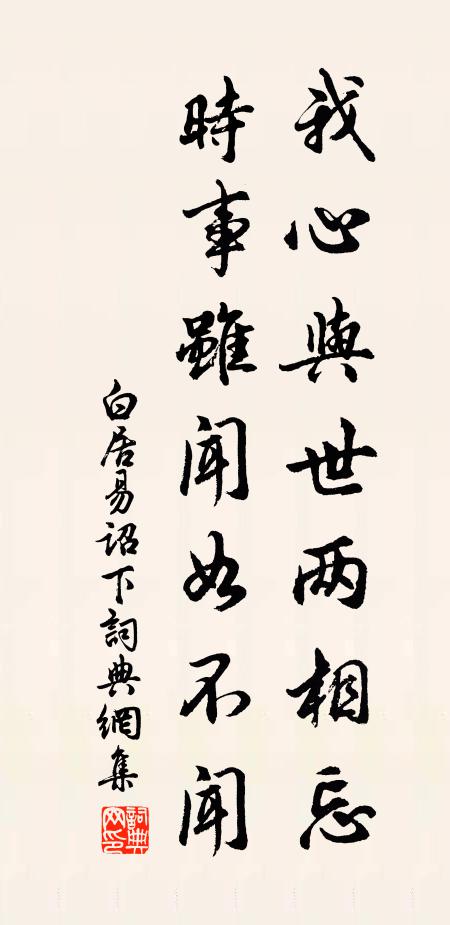 我心與世两相忘
時事雖聞如不聞
白居易詔下詞典網集
詞典网印